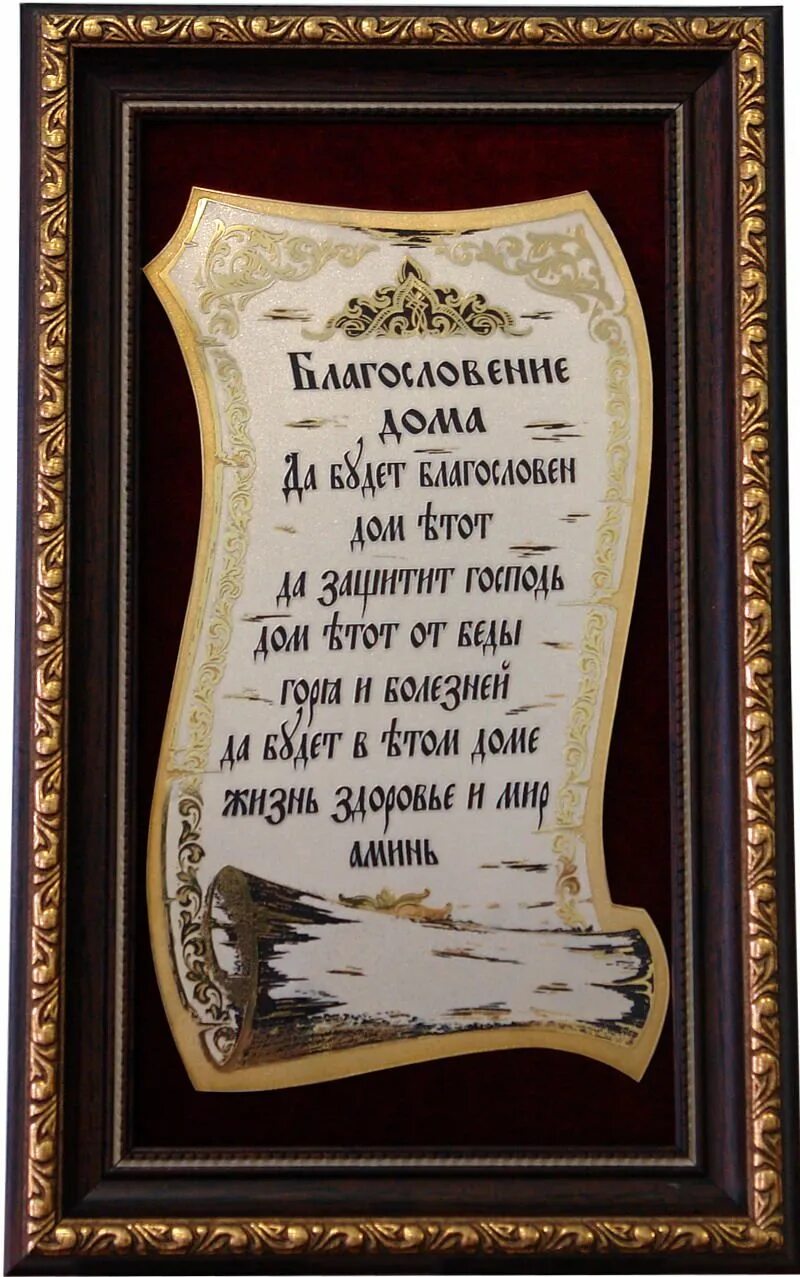 Благословение
дома
Да будет благословен
дом ѣтот
да защитит господь
дом ѣтот от беды
горꙗ и болезней
да будет в ѣтом доме
жизнь здоровье и мир
аминь